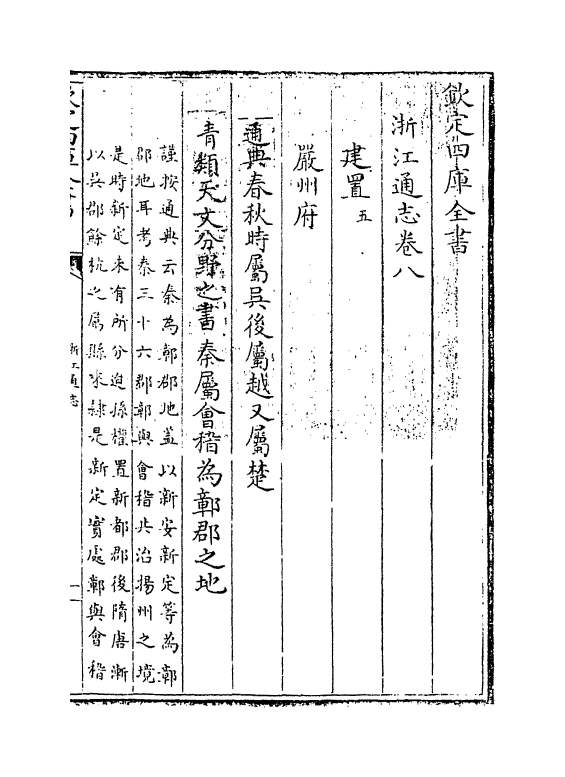 欽定四庫全書
浙江通志卷八
建置五
嚴州府
通典春秋時屬吳後屬越又屬楚
青類天文分野之書秦屬會稽為鄣郡之地
謹按通典云秦為鄣郡地蓋以新安新定等為鄣
郡地耳考秦三十六郡鄣與會稽共治揚州之境
是時新定未有所分迨孫權置新都郡後隋唐漸
以吳郡餘杭之屬縣來隸是新定實處鄣與會稽
浙江通志
一